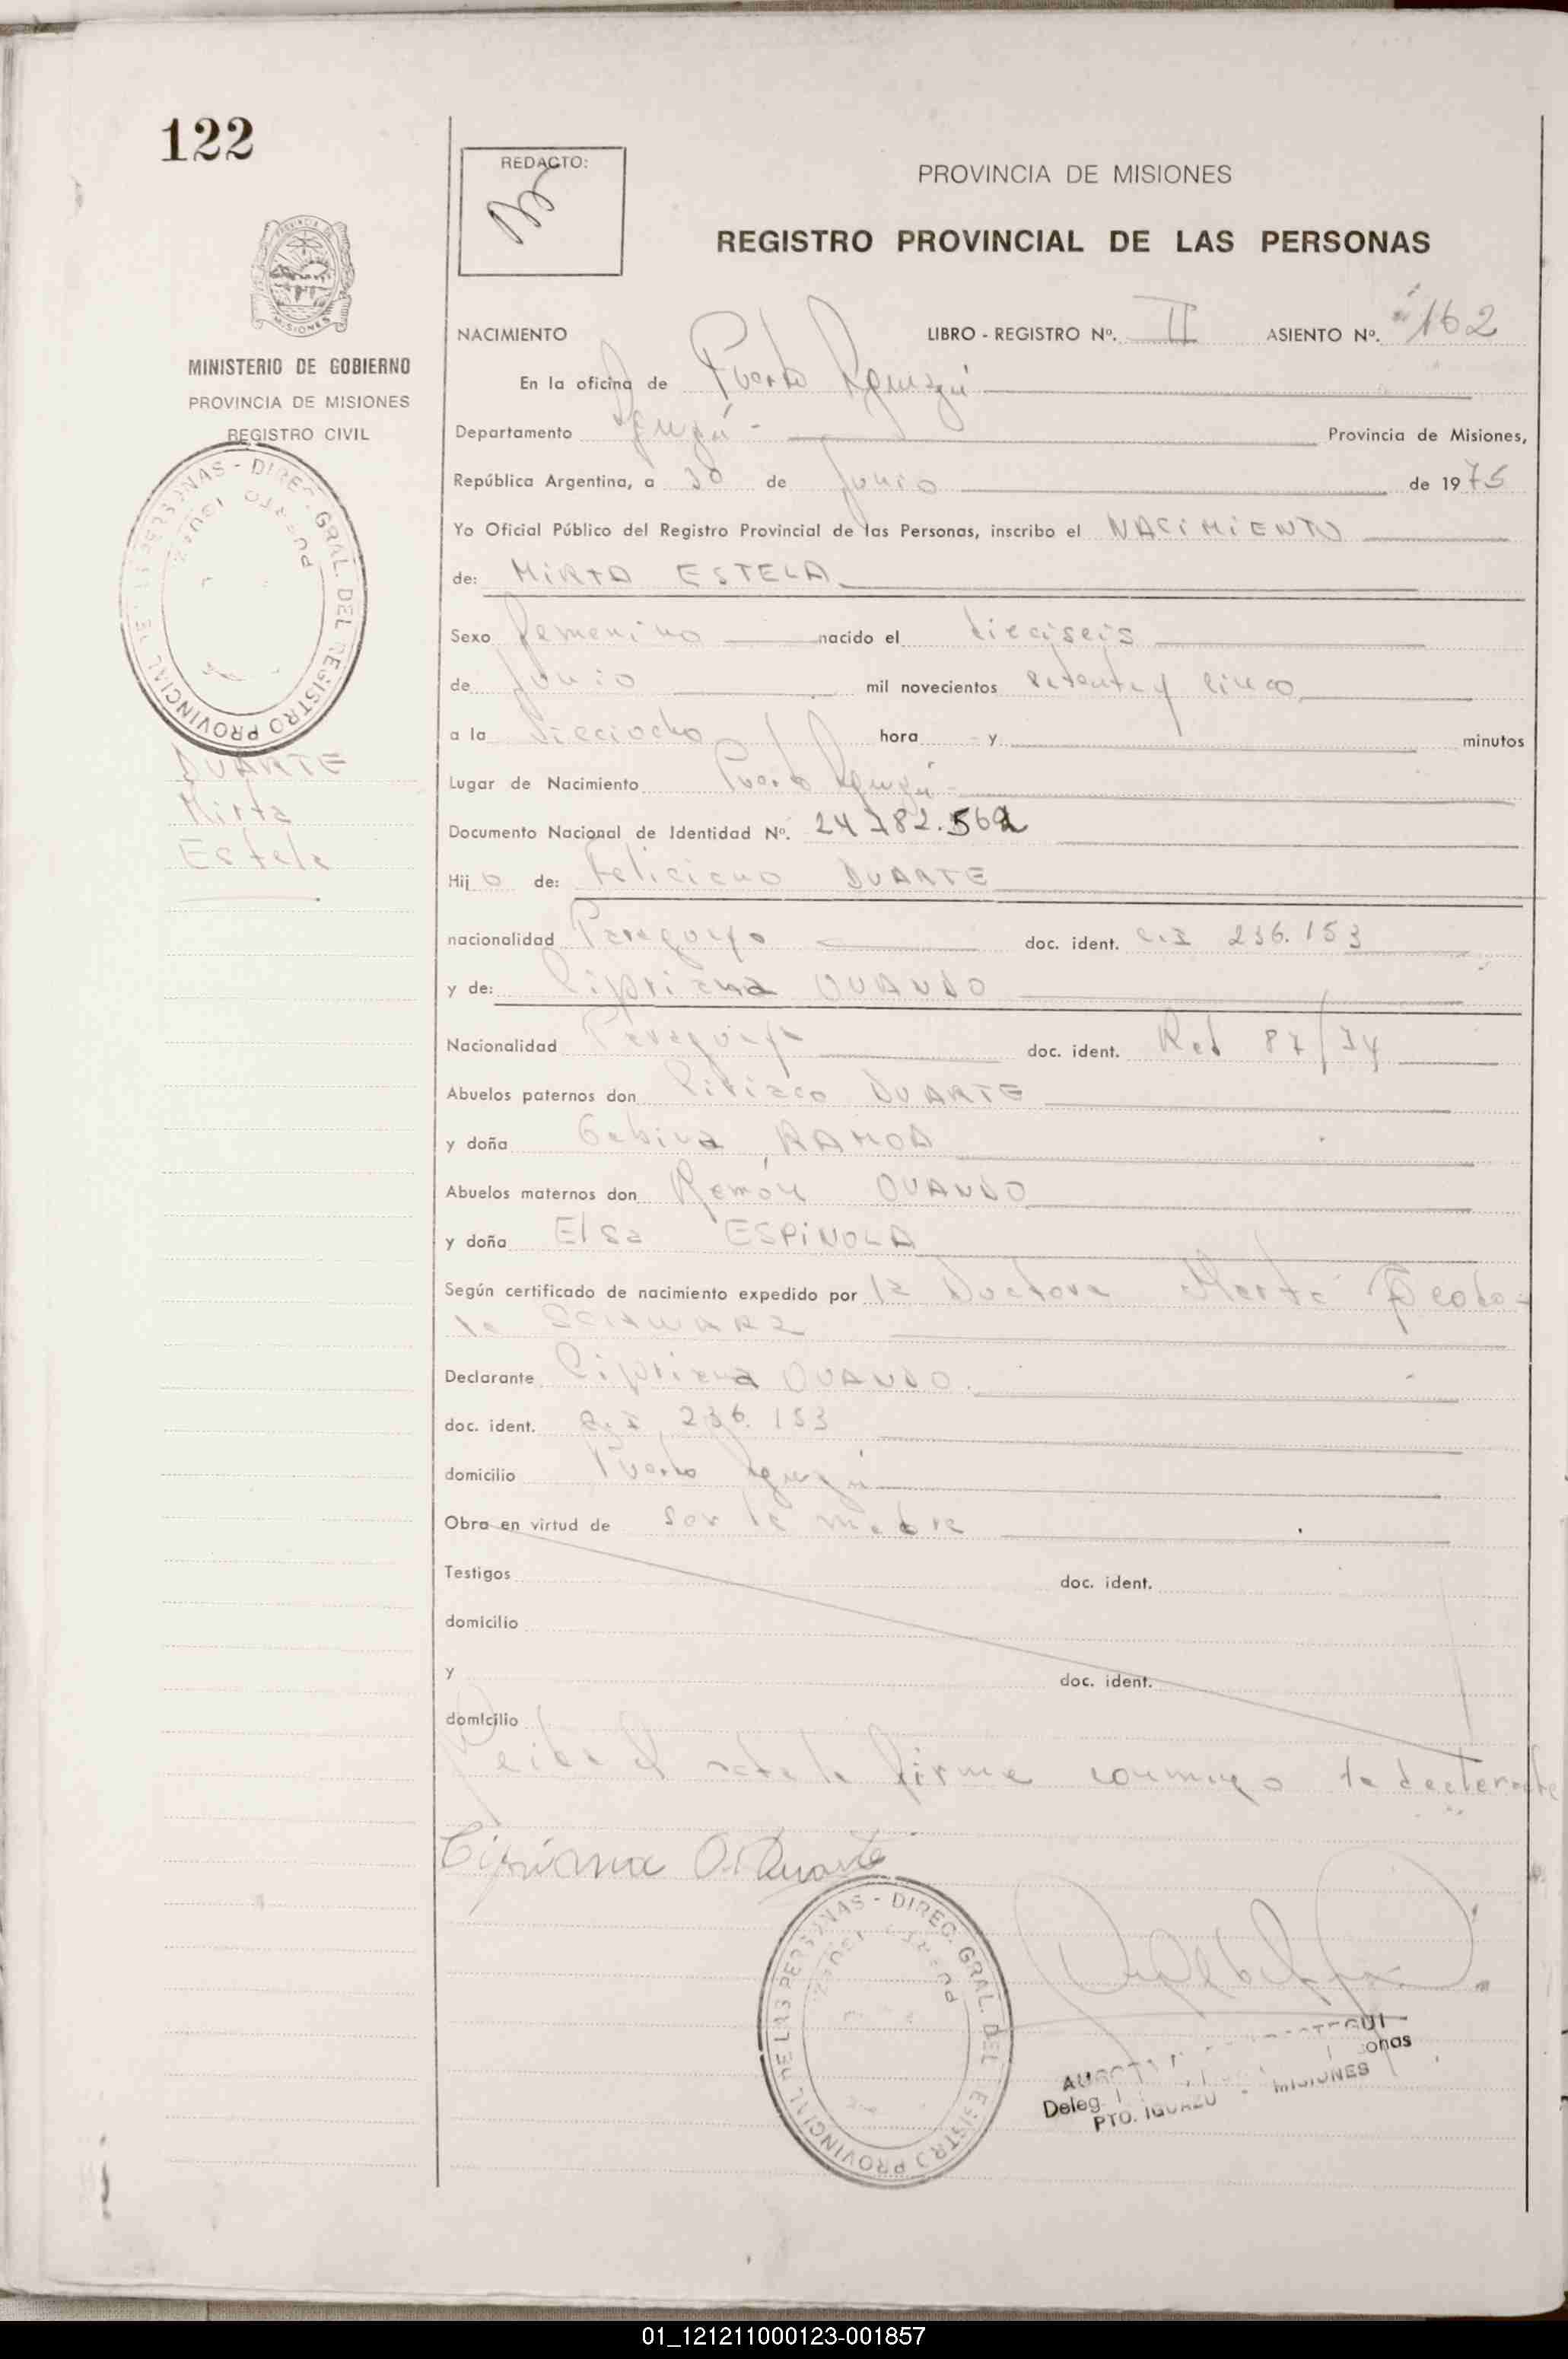 122
REDACTO:
PROVINCIA DE MISIONES
REGISTRO PROVINCIAL DE LAS PERSONAS
MINISTERIO DE GOBIERNO
PROVINCIA DE MISIONES
REGISTRO CIVIL
DIREC. GRAL. DEL REGISTRO PROVINCIAL DE LAS PERSONAS -
PUERTO IGUAZU
DUARTE
Mirta
Estela
NACIMIENTO LIBRO - REGISTRO Nº. II ASIENTO Nº. 162
En la oficina de Puerto Iguazú
Departamento Iguazú - Provincia de Misiones,
República Argentina, a 30 de Junio de 1975
Yo Oficial Público del Registro Provincial de las Personas, inscribo el NACIMIENTO
de: MIRTA ESTELA
Sexo femenino nacido el dieciseis
de Junio mil novecientos setenta y cinco
a la dieciocho hora - y minutos
Lugar de Nacimiento Puerto Iguazú -
Documento Nacional de Identidad Nº. 24.782.562
Hij o de: Feliciano DUARTE
nacionalidad Paraguayo doc. ident. C.I 236.153
y de: Cipriana OVANDO
Nacionalidad Paraguaya doc. ident. Rad 87/74
Abuelos paternos don Ciriaco DUARTE
y doña Gabina RAMOA
Abuelos maternos don Ramón OVANDO
y doña Elsa ESPINOLA
Según certificado de nacimiento expedido por la Doctora Marta
de SCHWARZ
Declarante Cipriana OVANDO.
doc. ident. C.I 236.153
domicilio Puerto Iguazú
Obra en virtud de ser la madre
Testigos doc. ident.
domicilio
y doc. ident.
domicilio
Leida el acta la firma conmigo la declarante
Cipriana O. Duarte
DIREC. GRAL. DEL REGISTRO PROVINCIAL DE LAS PERSONAS -
PUERTO IGUAZU
Deleg.
PTO. IGUAZU - MISIONES
01_121211000123-001857